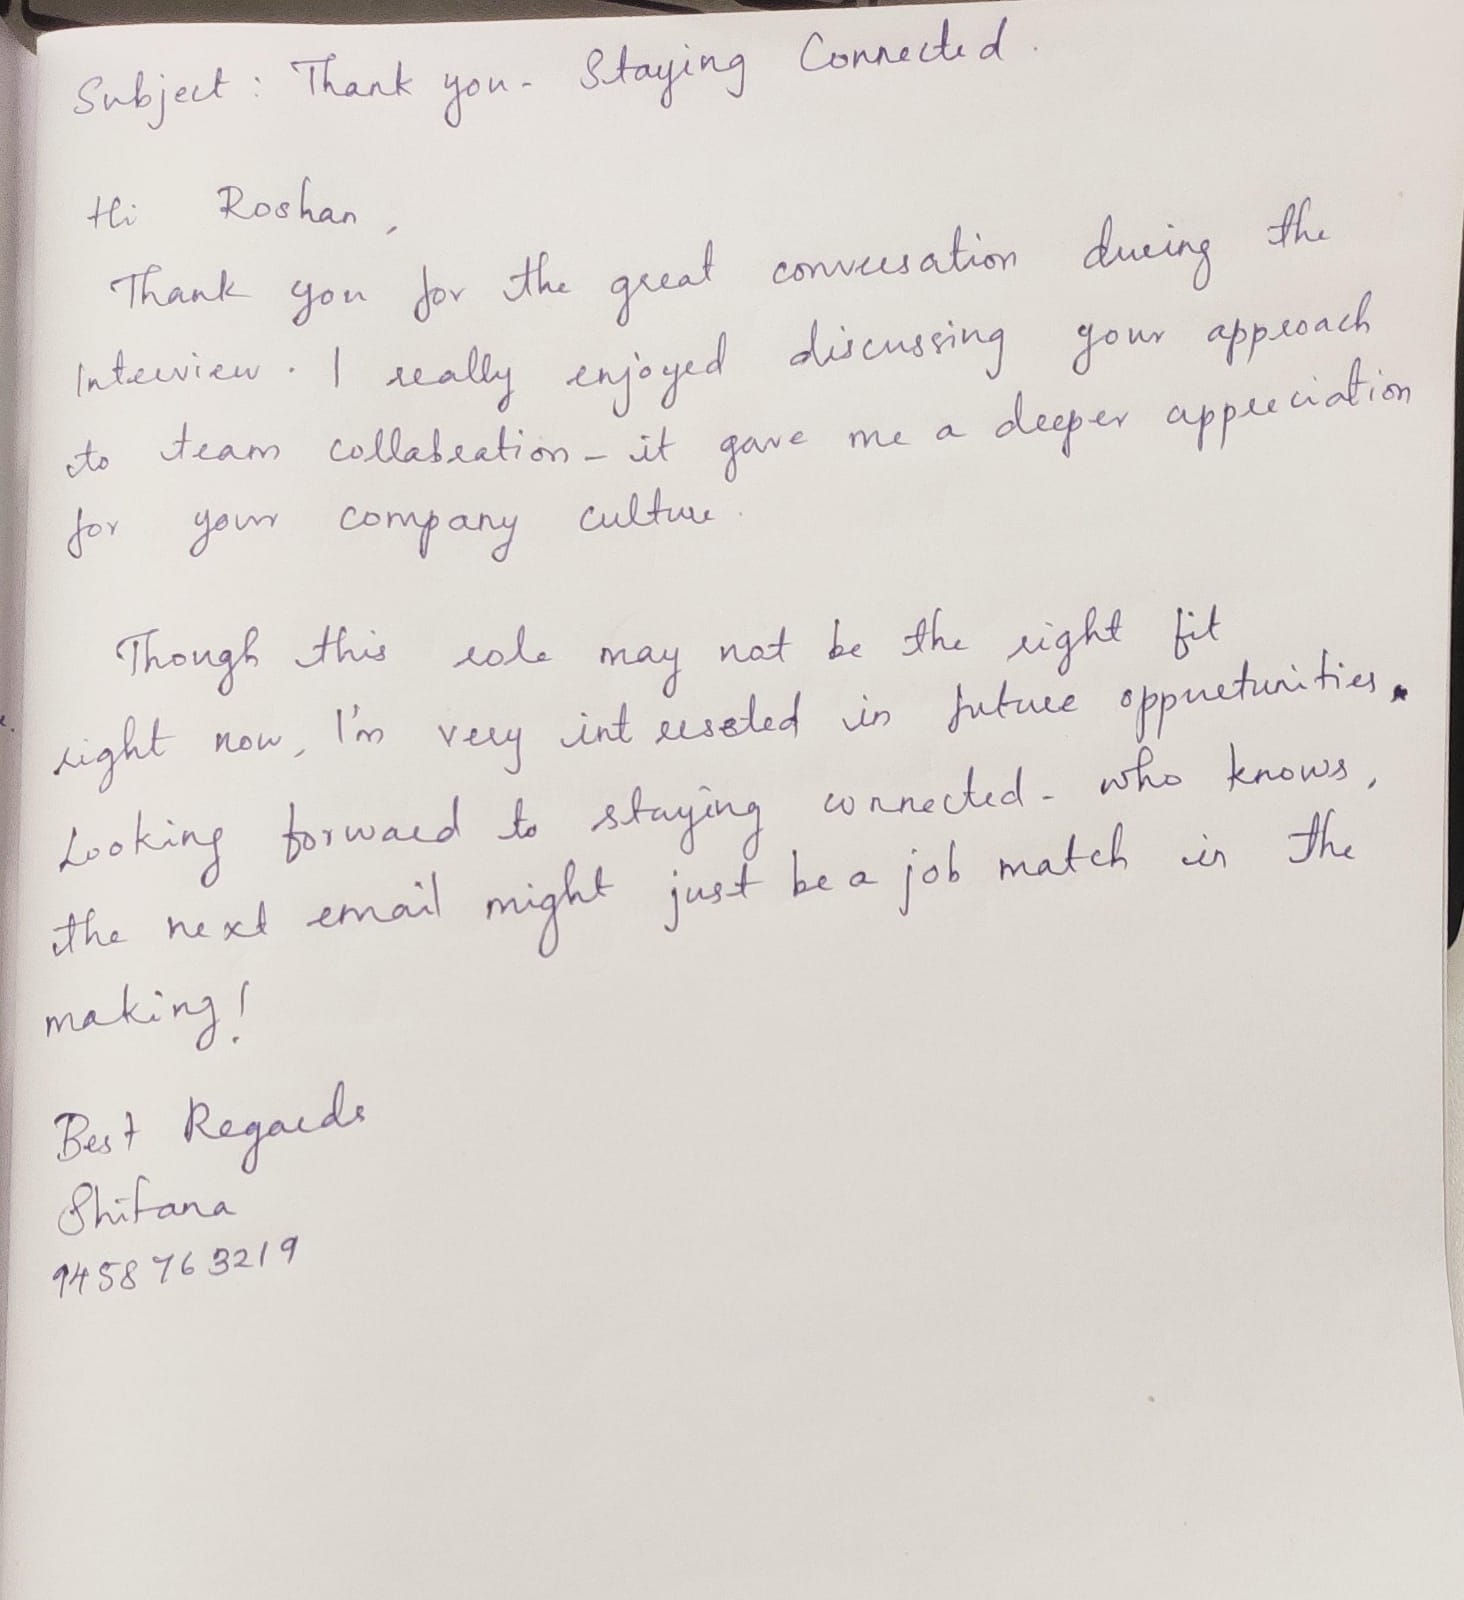 Subject : Thank you - Staying Connected.
Hi Roshan,
Thank you for the great conversation during the
Interview. I really enjoyed discussing your approach
to team collabration - it gave me a deeper appreciation
for your company culture.
Though this role may not be the right fit
right now, I'm very interested in future oppurtunities.
Looking forward to staying connected - who knows,
the next email might just be a job match in the
making!
Best Regards
Shifana
9458763219